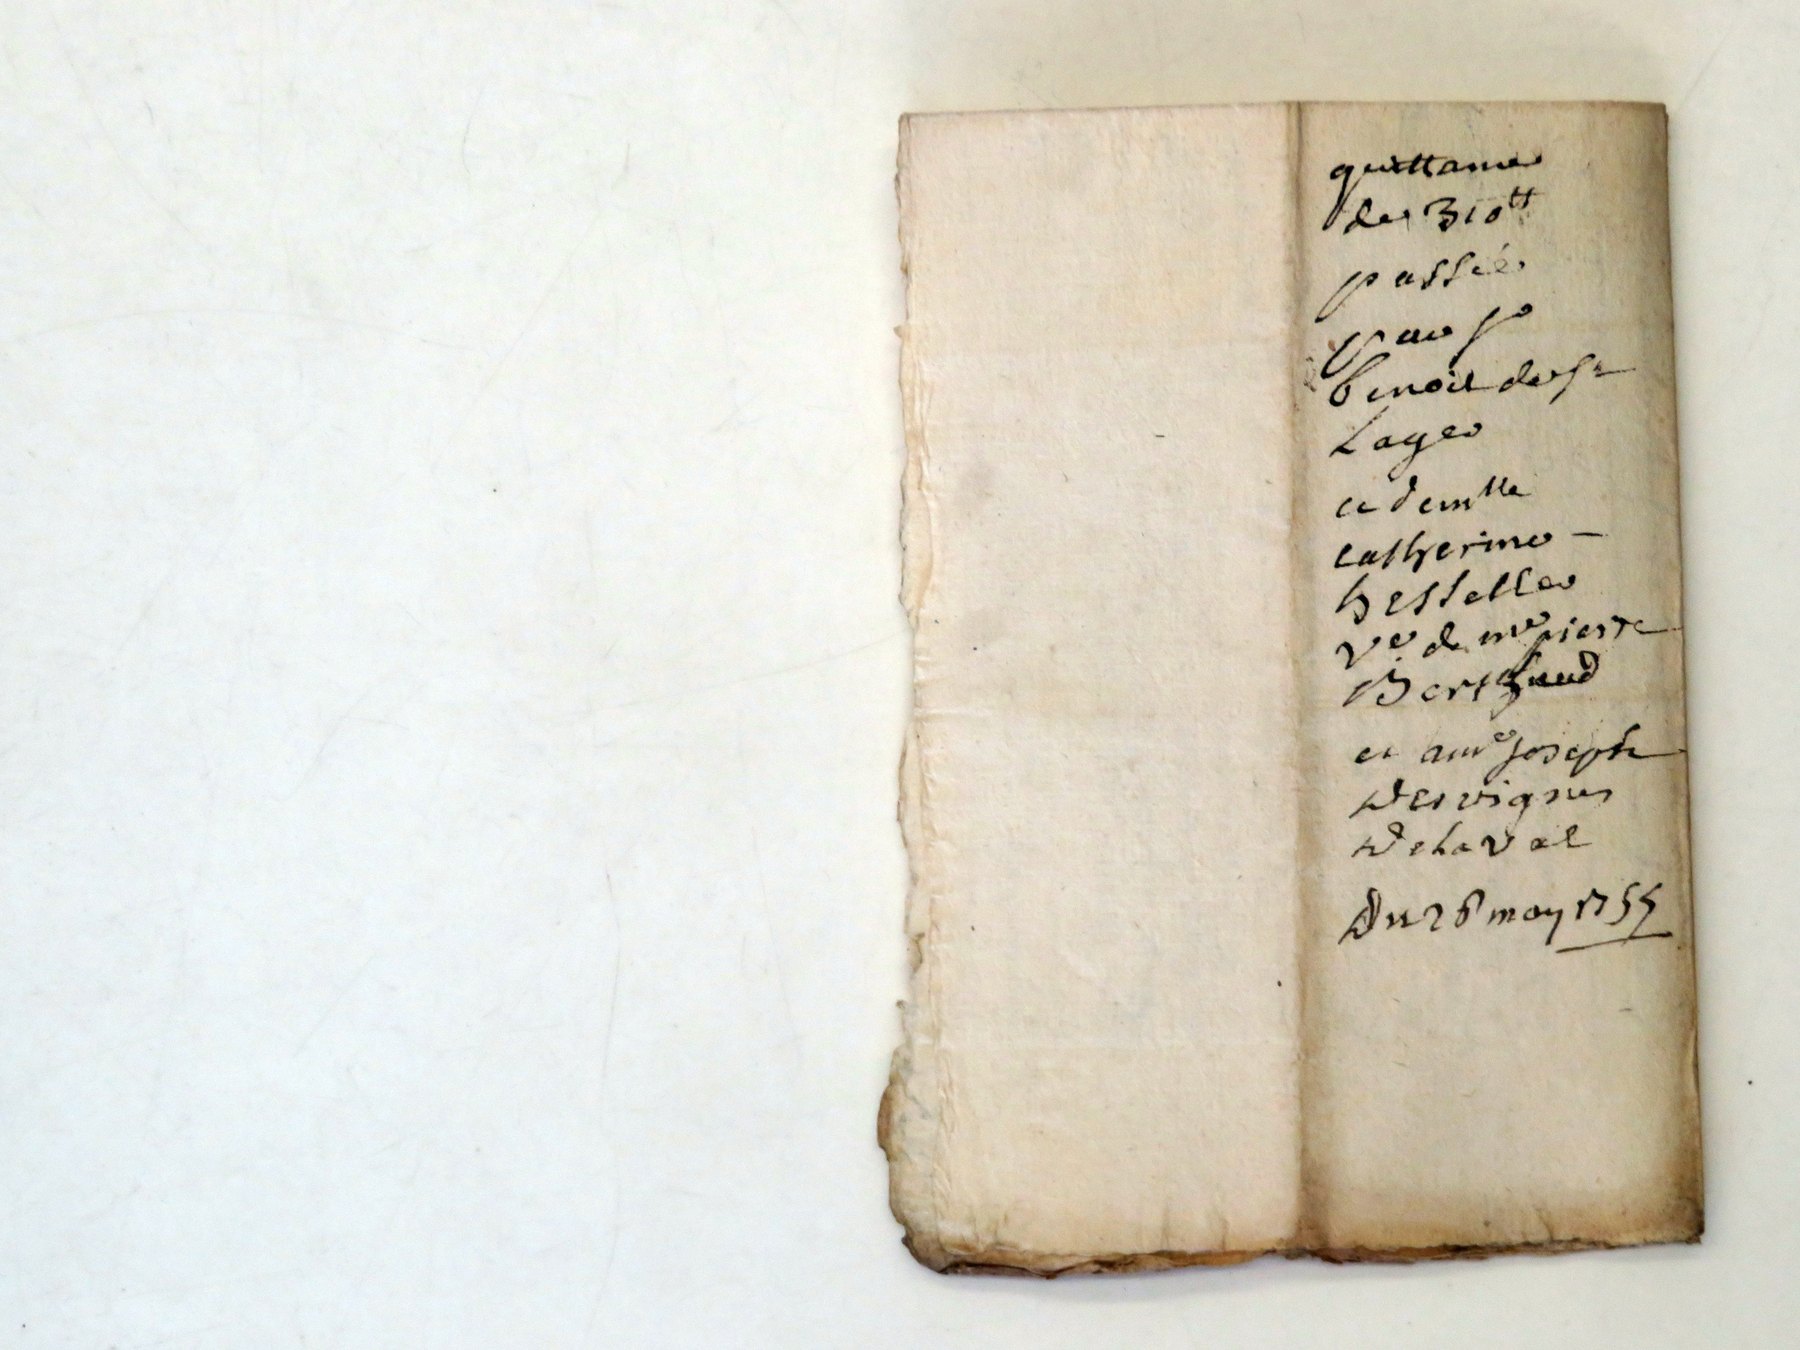 quittance
de 310tt
passée
par so
benoit de st
Lager
et demlle
catherine -
hesteller
ve de me pierre
Berthaud
et a me joseph
Desvignes
Delaval
Du 26 may 1755